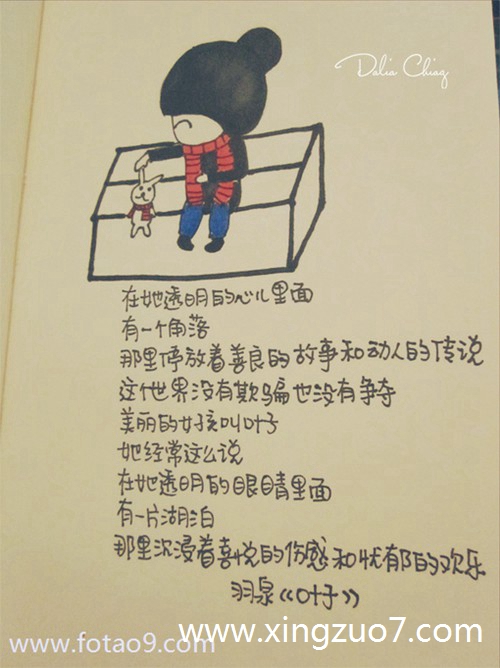 Dalia Chiag
在她透明的心儿里面
有一个角落
那里停放着善良的故事和动人的传说
这个世界没有欺骗也没有争夺
美丽的女孩叫叶子
她经常这么说
在她透明的眼睛里面
有一片湖泊
那里沉浸着喜悦的伤感和忧郁的欢乐
羽泉《叶子》
www.fotao9.com
www.xingzuo7.com